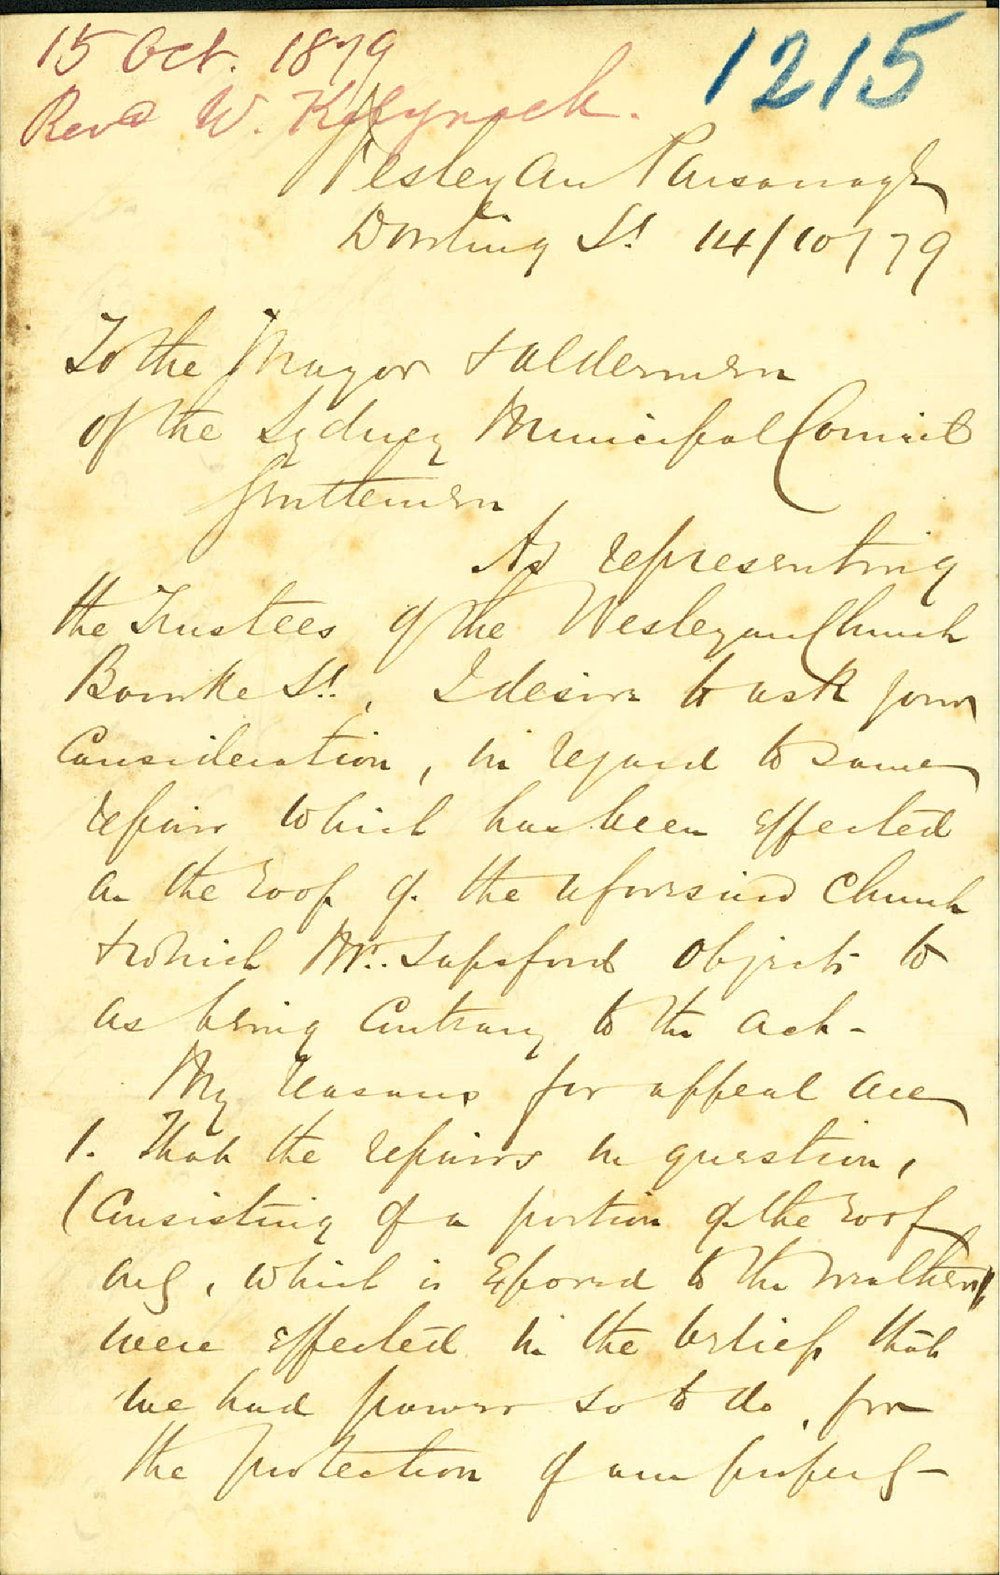 15 Oct. 1879
1215
Revd W. Kelynack.
Wesleyan Parsonage
Dowling St 14/10/79
To the Mayor & Aldermen
of the Sydney Municipal Council
Gentlemen
As representing
the Trustees of the Wesleyan Church
Bourke St., I desire to ask your
Consideration, in regard to some
repairs which has been effected
on the roof of the aforesaid Church
& which Mr. Sapsford objects to
as being Contrary to the act-
My reasons for appeal are
1. That the repairs in question,
(Consisting of a portion of the roof
only, which is Exposed to the weather)
were effected in the belief that
we had power so to do, for
the protection of our property-